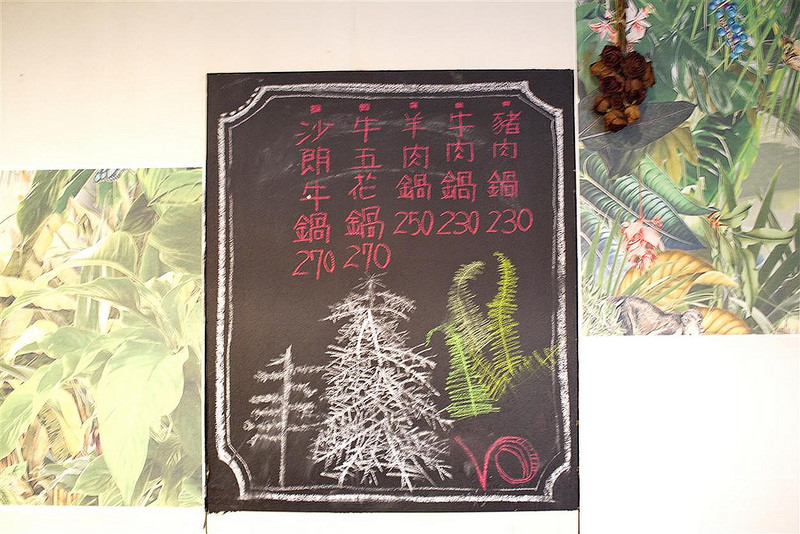 豬肉鍋230
牛肉鍋230
羊肉鍋250
牛五花鍋270
沙朗牛鍋270
VO